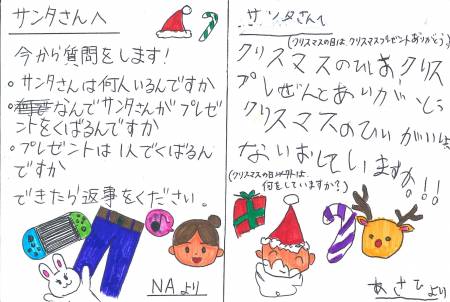 サンタさんへ
今から質問をします!
・サンタさんは何人いるんですか
・なんでサンタさんがプレゼ
ントをくばるんですか
・プレゼントは1人でくばるん
ですか
できたら返事をください。
NAより
サンタさんへ
(クリスマスの日は、クリスマスプレゼントありがとう。)
クリスマスのひは、クリス
プレぜんとありがとう
クリスマスのひいがいは
ないおしていますか!!!
(クリスマスの日以外は
何をしていますか?)
あさひより